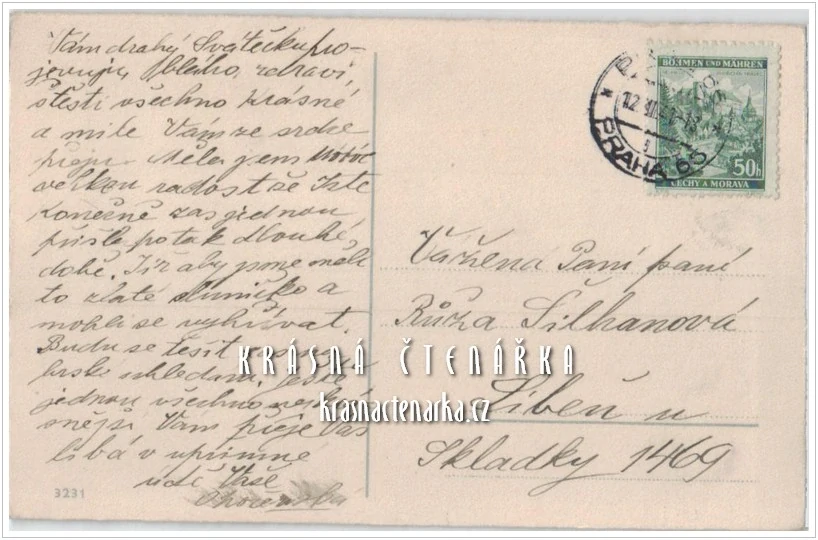 Vám drahý Svátečku pro-
jevuju blaho, zdraví,
štěstí všechno krásné
a mile Vám ze srdce
přeju. Měla jsem
velkou radost že Jste
konečně zas jednou
přišla po tak dlouhé,
době. Již aby jsme měli
to zlaté sluníčko a
mohli se vyhřívat.
Budu se těšit
shledaní. Ještě
jednou všechno nejkrá
snější Vám přeje Vás
líbá v upřímné
úctě Vaše
3231
BÖHMEN UND MÄHREN
50h
ČECHY A MORAVA
PRAHA 65
Vážená Paní paní
Růža Šilhanová
Libeň u
Skladky 1469
KRÁSNÁ ČTENÁŘKA
krasnactenarka.cz